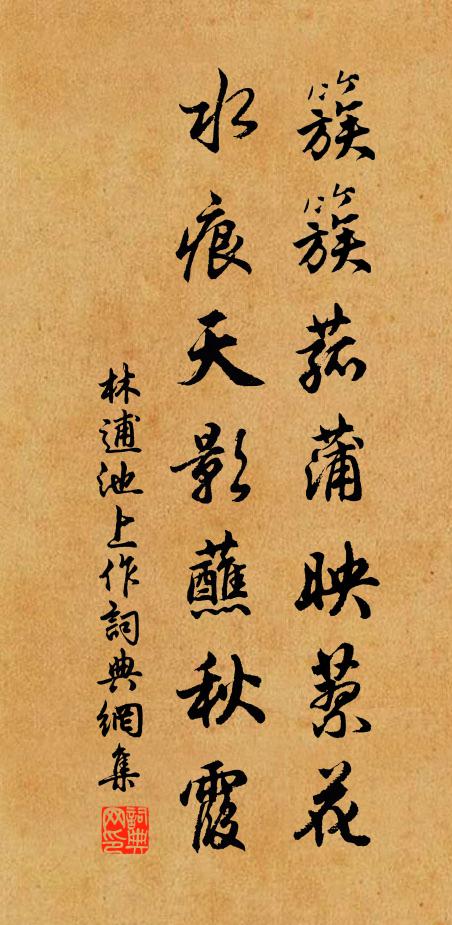 簇簇菰蒲映蓼花
水痕天影蘸秋霞
林逋池上作詞典網集
詞典網印